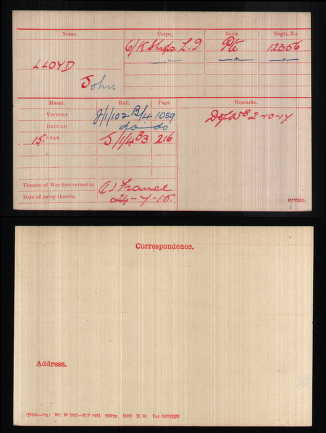 Name. Corps. Rank. Regtl. No.
6/K Shrops L.I Pte 12356
LLOYD
John
Medal. Roll. Page Remarks.
VICTORY J/1/102 B/4 1059
BRITISH do do
15 STAR 5/1/4 B3 216
Theatre of War first served in (1) France
Date of entry therein 24-7-15.
Correspondence.
Address.